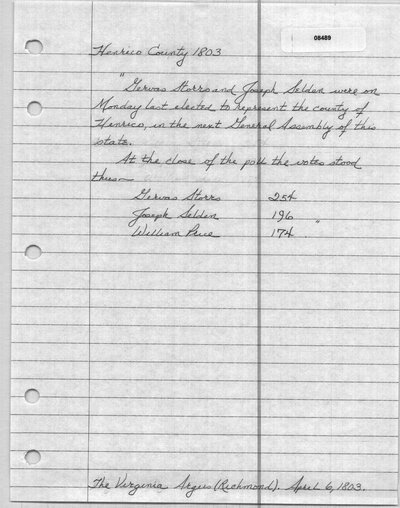 08489
Henrico County 1803
"Gervas Storrs and Joseph Selden were on
Monday last elected to represent the county of
Henrico, in the next General Assembly of this
state.
At the close of the poll the votes stood
thus—
Gervas Storrs 254
Joseph Selden 196 "
William Price 174
The Virginia Argus (Richmond). April 6, 1803.